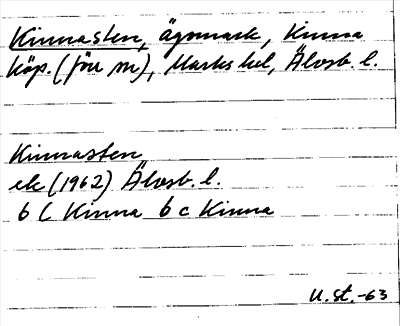 Kinnasten, ägomark, Kinna
köp. (förr sn), Marks hd, Älvsb. l.
Kinnasten
ek (1962) Älvsb. l.
6 C Kinna 6 c Kinna
U.St.-63